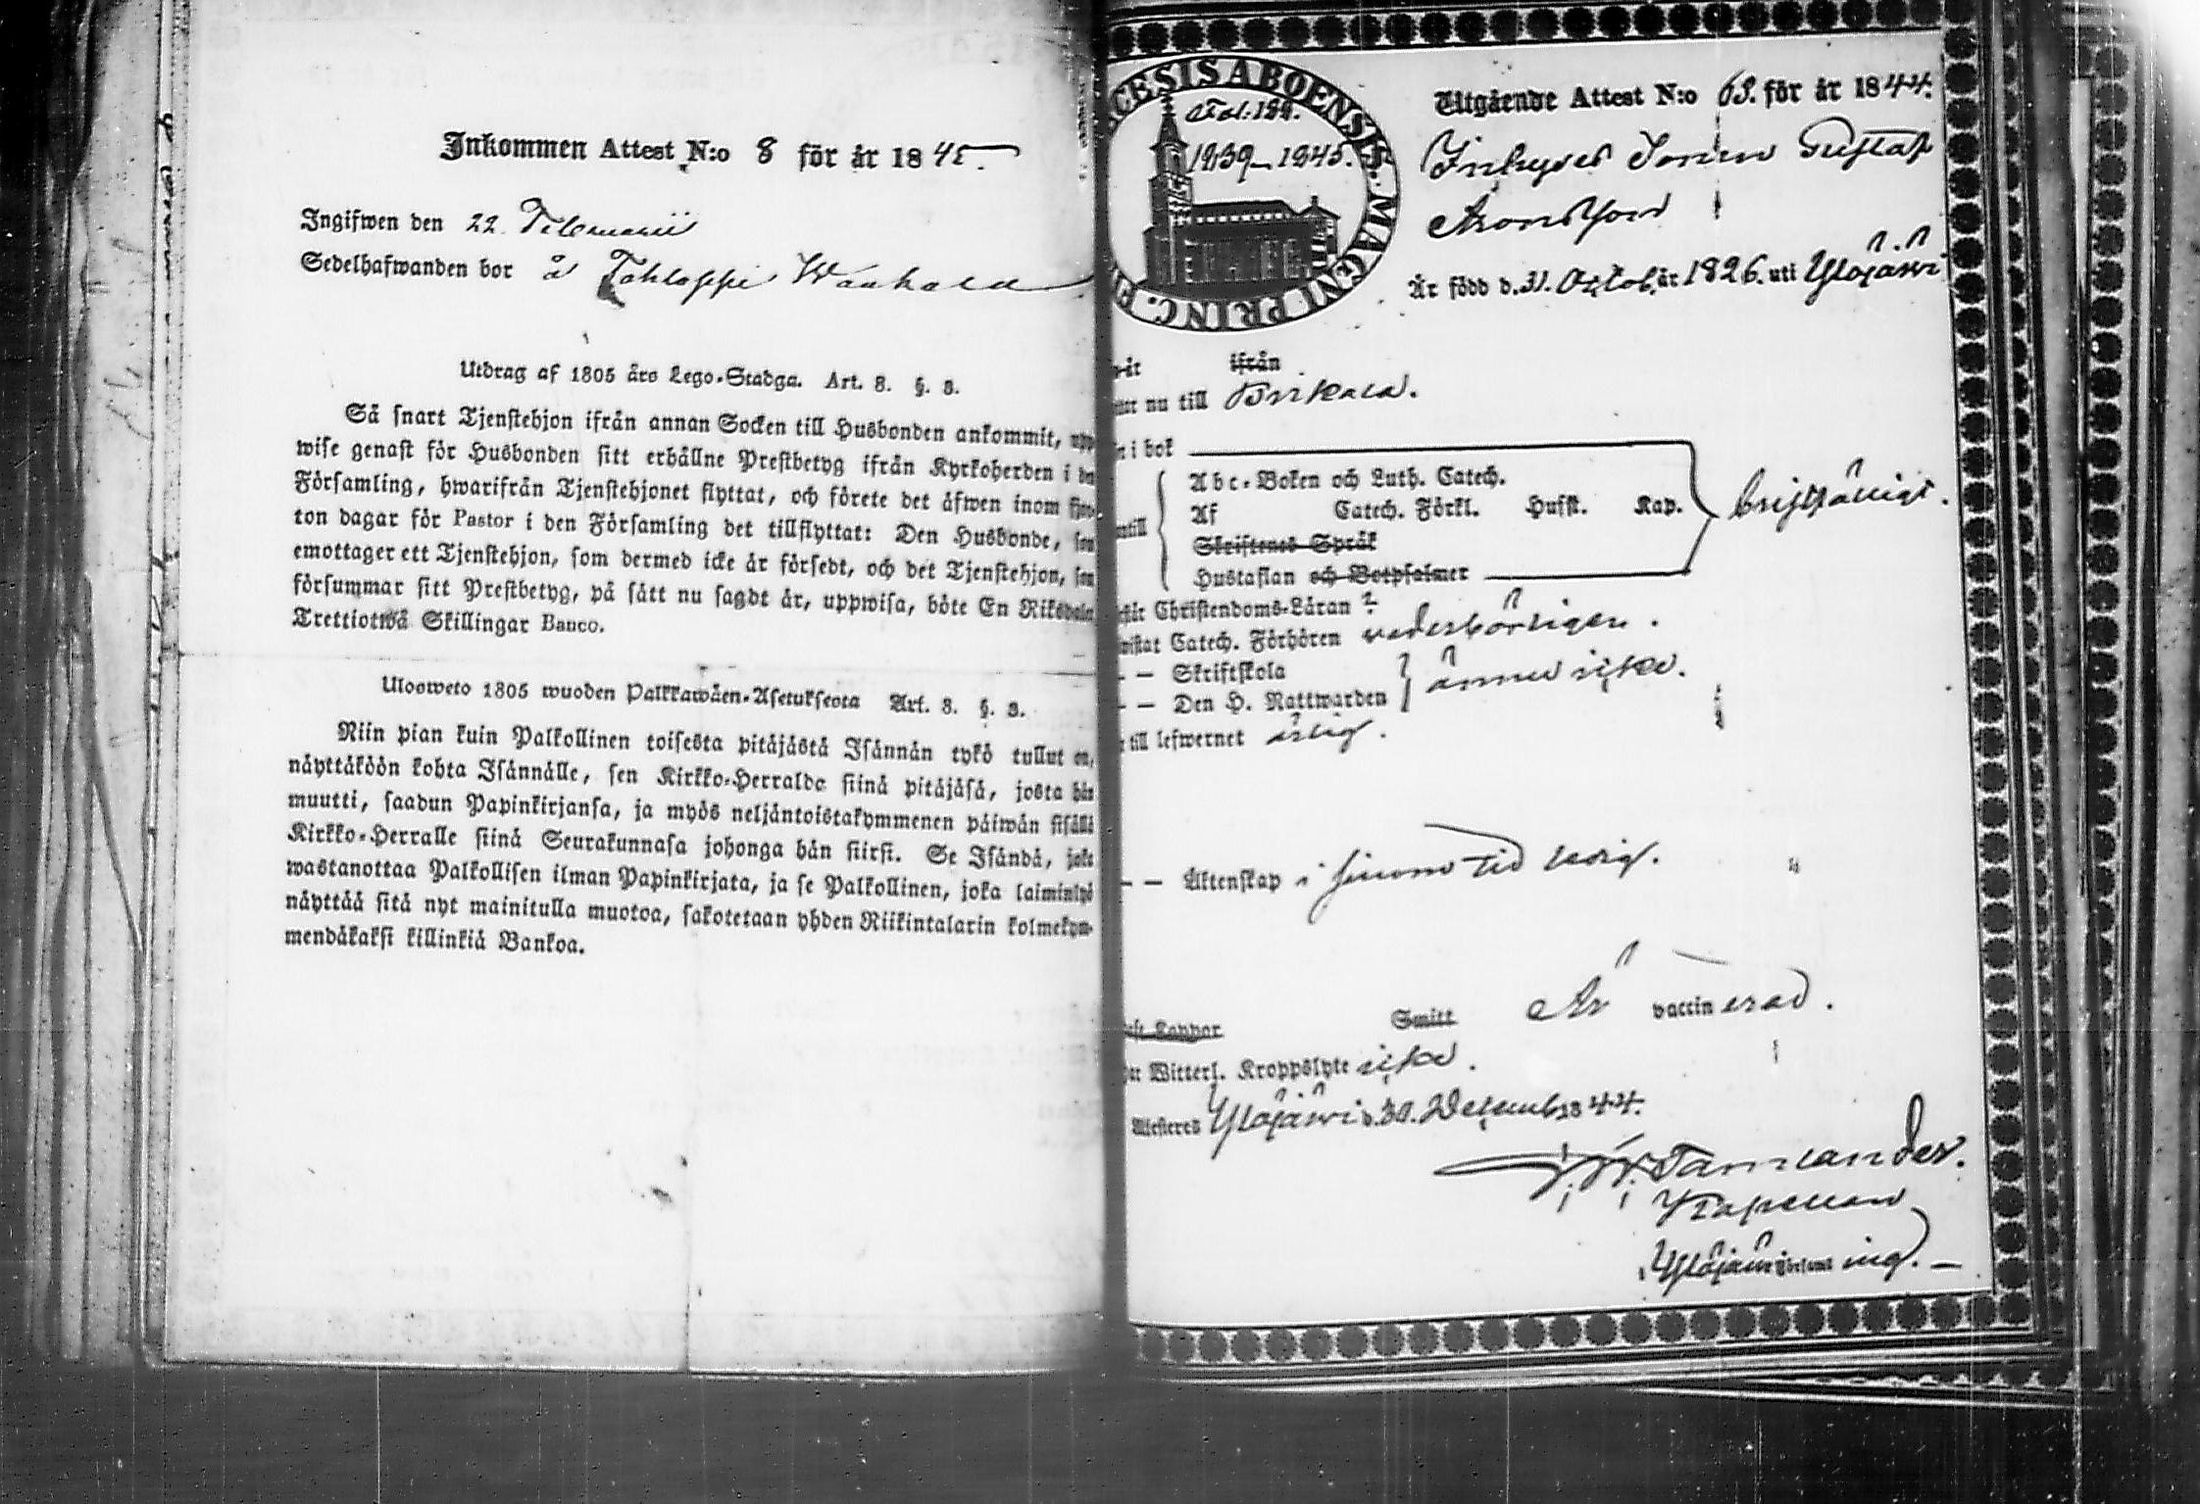 Inkommen Attest N:o 8 för år 1845.
Ingifwen den 22 Februarii
Sedelhafwanden bor å Tohloppi
Utdrag af 1805 års Lego-Stadga. Art. 8. §. 3.
Så snart Tjenstehjon ifrån annan Socken till Husbonden ankommit, upp-
wise genast för Husbonden sitt erhållne Prestbetyg ifrån Kyrkoherden i den
Församling, hwarifrån Tjenstehjonet flyttat, och förete det äfwen inom fjor-
ton dagar för Pastor i den Församling det tillflyttat: Den Husbonde, som
emottager ett Tjenstehjon, som dermed icke är försedt, och det Tjenstehjon, som
försummar sitt Prestbetyg, på sätt nu sagdt är, uppwisa, böte En Riksdaler
Trettiotwå Skillingar Banco.
Ulosweto 1805 wuoden Palkkawäen-Asetuksesta Art. 8. §. 3.
Niin pian kuin Palkollinen toisesta pitäjästä Isännän tykö tullut on,
näyttäköön kohta Isännälle, sen Kirkko-Herralda siinä pitäjäsä, josta hän
muutti, saadun Papinkirjansa, ja myös neljäntoistakymmenen päiwän sisällä
Kirkko-Herralle siinä Seurakunnasa johonga hän siirsi. Se Isändä, joka
wastanottaa Palkollisen ilman Papinkirjata, ja se Palkollinen, joka laiminlyö
näyttää sitä nyt mainitulla muotoa, sakotetaan yhden Riikintalarin kolmekym-
mendäkaksi killinkiä Bankoa.
CESIS ABOENSIS. MAGNI PRINC.
Fol: 122.
1839-1845.
Utgående Attest N:o 63. för år 1844.
Inhyses Sonen Gustaf
Aronsson
Är född d. 31. Octob. år 1826. uti Ylöjärvi
ifrån
nu till Birkala.
i bok
Abc-Boken och Luth. Catech.
Af Catech. Förkl. Husst. Kap.
Skriftenes Språk
Hustaflan och Botpsalmer
bristfälligt.
Christendoms-Läran
Catech. Förhören vederbörligen.
— — Skriftskola
— — Den H. Nattwarden
ännu icke.
till lefwernet ärlig.
— — Äktenskap i sinom tid ledig.
Koppor Smitt Är vaccinerad.
Witterl. Kroppslyte icke.
Attesteras Ylöjärvi d. 30. Decemb. 1844.
Tamlander.
Kapellan
i Ylöjärvi Församling.